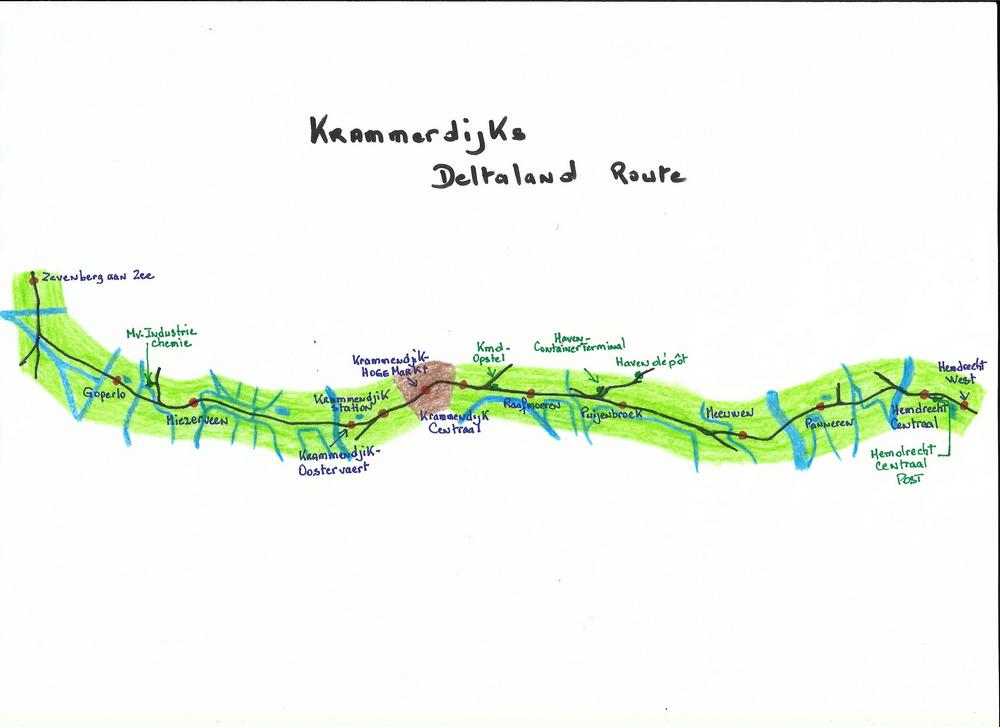 Krammerdijks
Deltaland Route
Zevenberg aan Zee
Mv. Industrie
chemie
Goperlo
Miezerveen
Krammendijk
station
Krammendjik-
Oostervaert
Krammendjik-
Hoge Markt
Krammendijk
Centraal
Kmd-
Opstel
Raafmoeren
Haven-
Container Terminal
Haven dépôt
Puijenbroek
Meeuwen
Panneren
Hemdrecht
West
Hemdrecht
Centraal
Hemdrecht
Centraal
Post